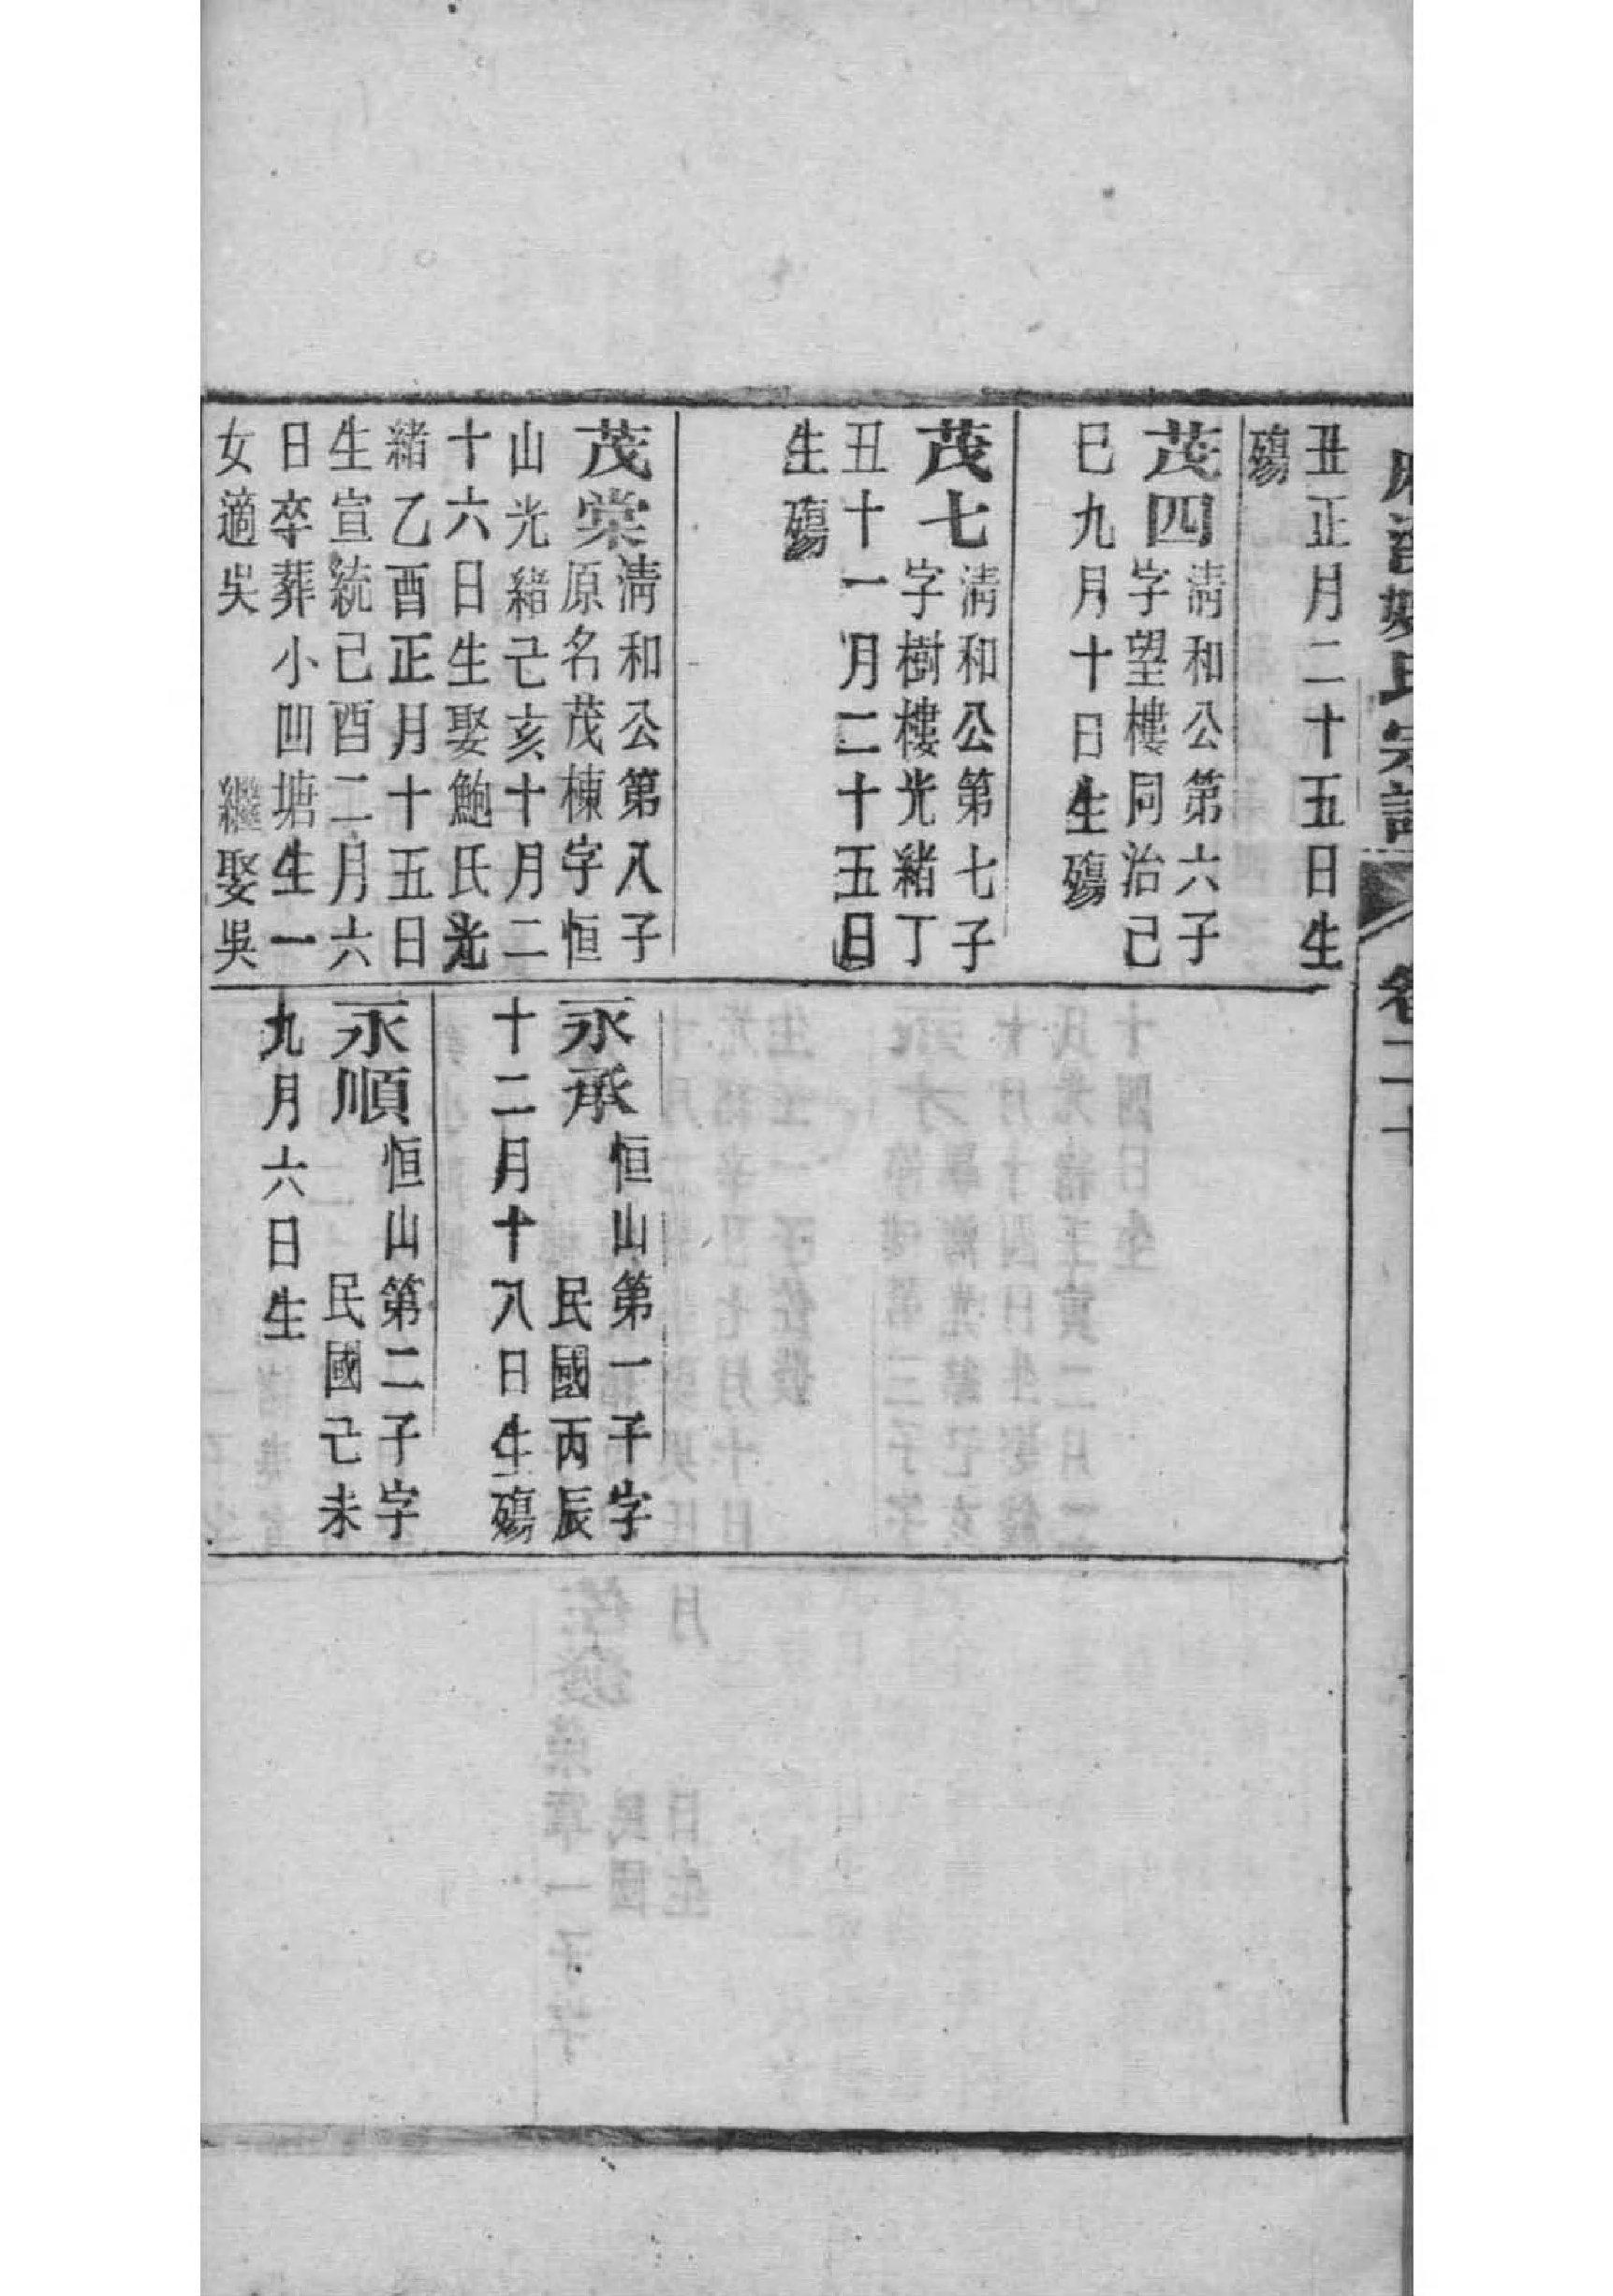 氏宗譜
卷二十
丑正月二十五日生
殤
茂四
清和公第六子
字望樓同治己
巳九月十日生殤
茂七
清和公第七子
字樹樓光緒丁
丑十一月二十五日
生殤
茂棠
清和公第八子
原名茂棟字恒
山光緒己亥十月二
十六日生娶鮑氏光
緒乙酉正月十五日
生宣統己酉二月六
日卒葬小凹塘生一
女適吳　　繼娶吳
永承
恒山第一子字
民國丙辰
十二月十八日生殤
永順
恒山第二子字
民國己未
九月六日生